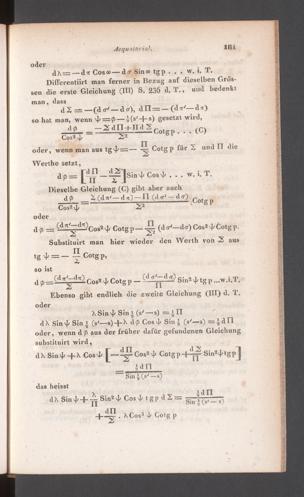 Aequatorial.
oder
dλ = — dπ Cos ω — dσ Sin ω tg p . . . w. i. T.
Differentiirt man ferner in Bezug auf dieselben Grös-
sen die erste Gleichung (III) S. 235 d. T., und bedenkt
man, dass
dΣ = —(dσ'—dσ), dΠ = — (dπ'—dπ)
so hat man, wenn ψ = φ — ½(s'+s) gesetzt wird,
dφ/Cos² ψ = (—Σ dΠ + Π dΣ)/Σ² Cotg p . . . (C)
oder, wenn man aus tg ψ = — Π/Σ Cotg p für Σ und Π die
Werthe setzt,
dφ = [dΠ/Π — dΣ/Σ] Sin ψ Cos ψ . . . w. i. T.
Dieselbe Gleichung (C) gibt aber auch
dφ/Cos² ψ = (Σ (dπ'—dπ) — Π (dσ'—dσ))/Σ² . Cotg p
oder
dφ = (dπ'—dπ)/Σ Cos² ψ Cotg p — Π/Σ² (dσ'—dσ) Cos² ψ Cotg p.
Substituirt man hier wieder den Werth von Σ aus
tg ψ = — Π/Σ Cotg p,
so ist
dφ = (dπ'—dπ)/Σ Cos² ψ Cotg p — (dσ'—dσ)/Π Sin² ψ tg p ...w.i.T.
Ebenso gibt endlich die zweite Gleichung (III) d. T.
oder
λ Sin ψ Sin ½ (s'—s) = ½ Π
dλ Sin ψ Sin ½ (s'—s) + λ dφ Cos ψ Sin ½ (s'—s) = ½ dΠ
oder, wenn dφ aus der früher dafür gefundenen Gleichung
substituirt wird,
dλ Sin ψ + λ Cos ψ [— dΠ/Σ Cos² ψ Cotg p + dΣ/Π Sin² ψ tg p]
= ½ dΠ/Sin ½ (s'—s)
das heisst
dλ Sin ψ + λ/Π Sin² ψ Cos ψ tg p dΣ = ½ dΠ/Sin ½ (s'—s)
+ dΠ/Σ . λ Cos³ ψ Cotg p